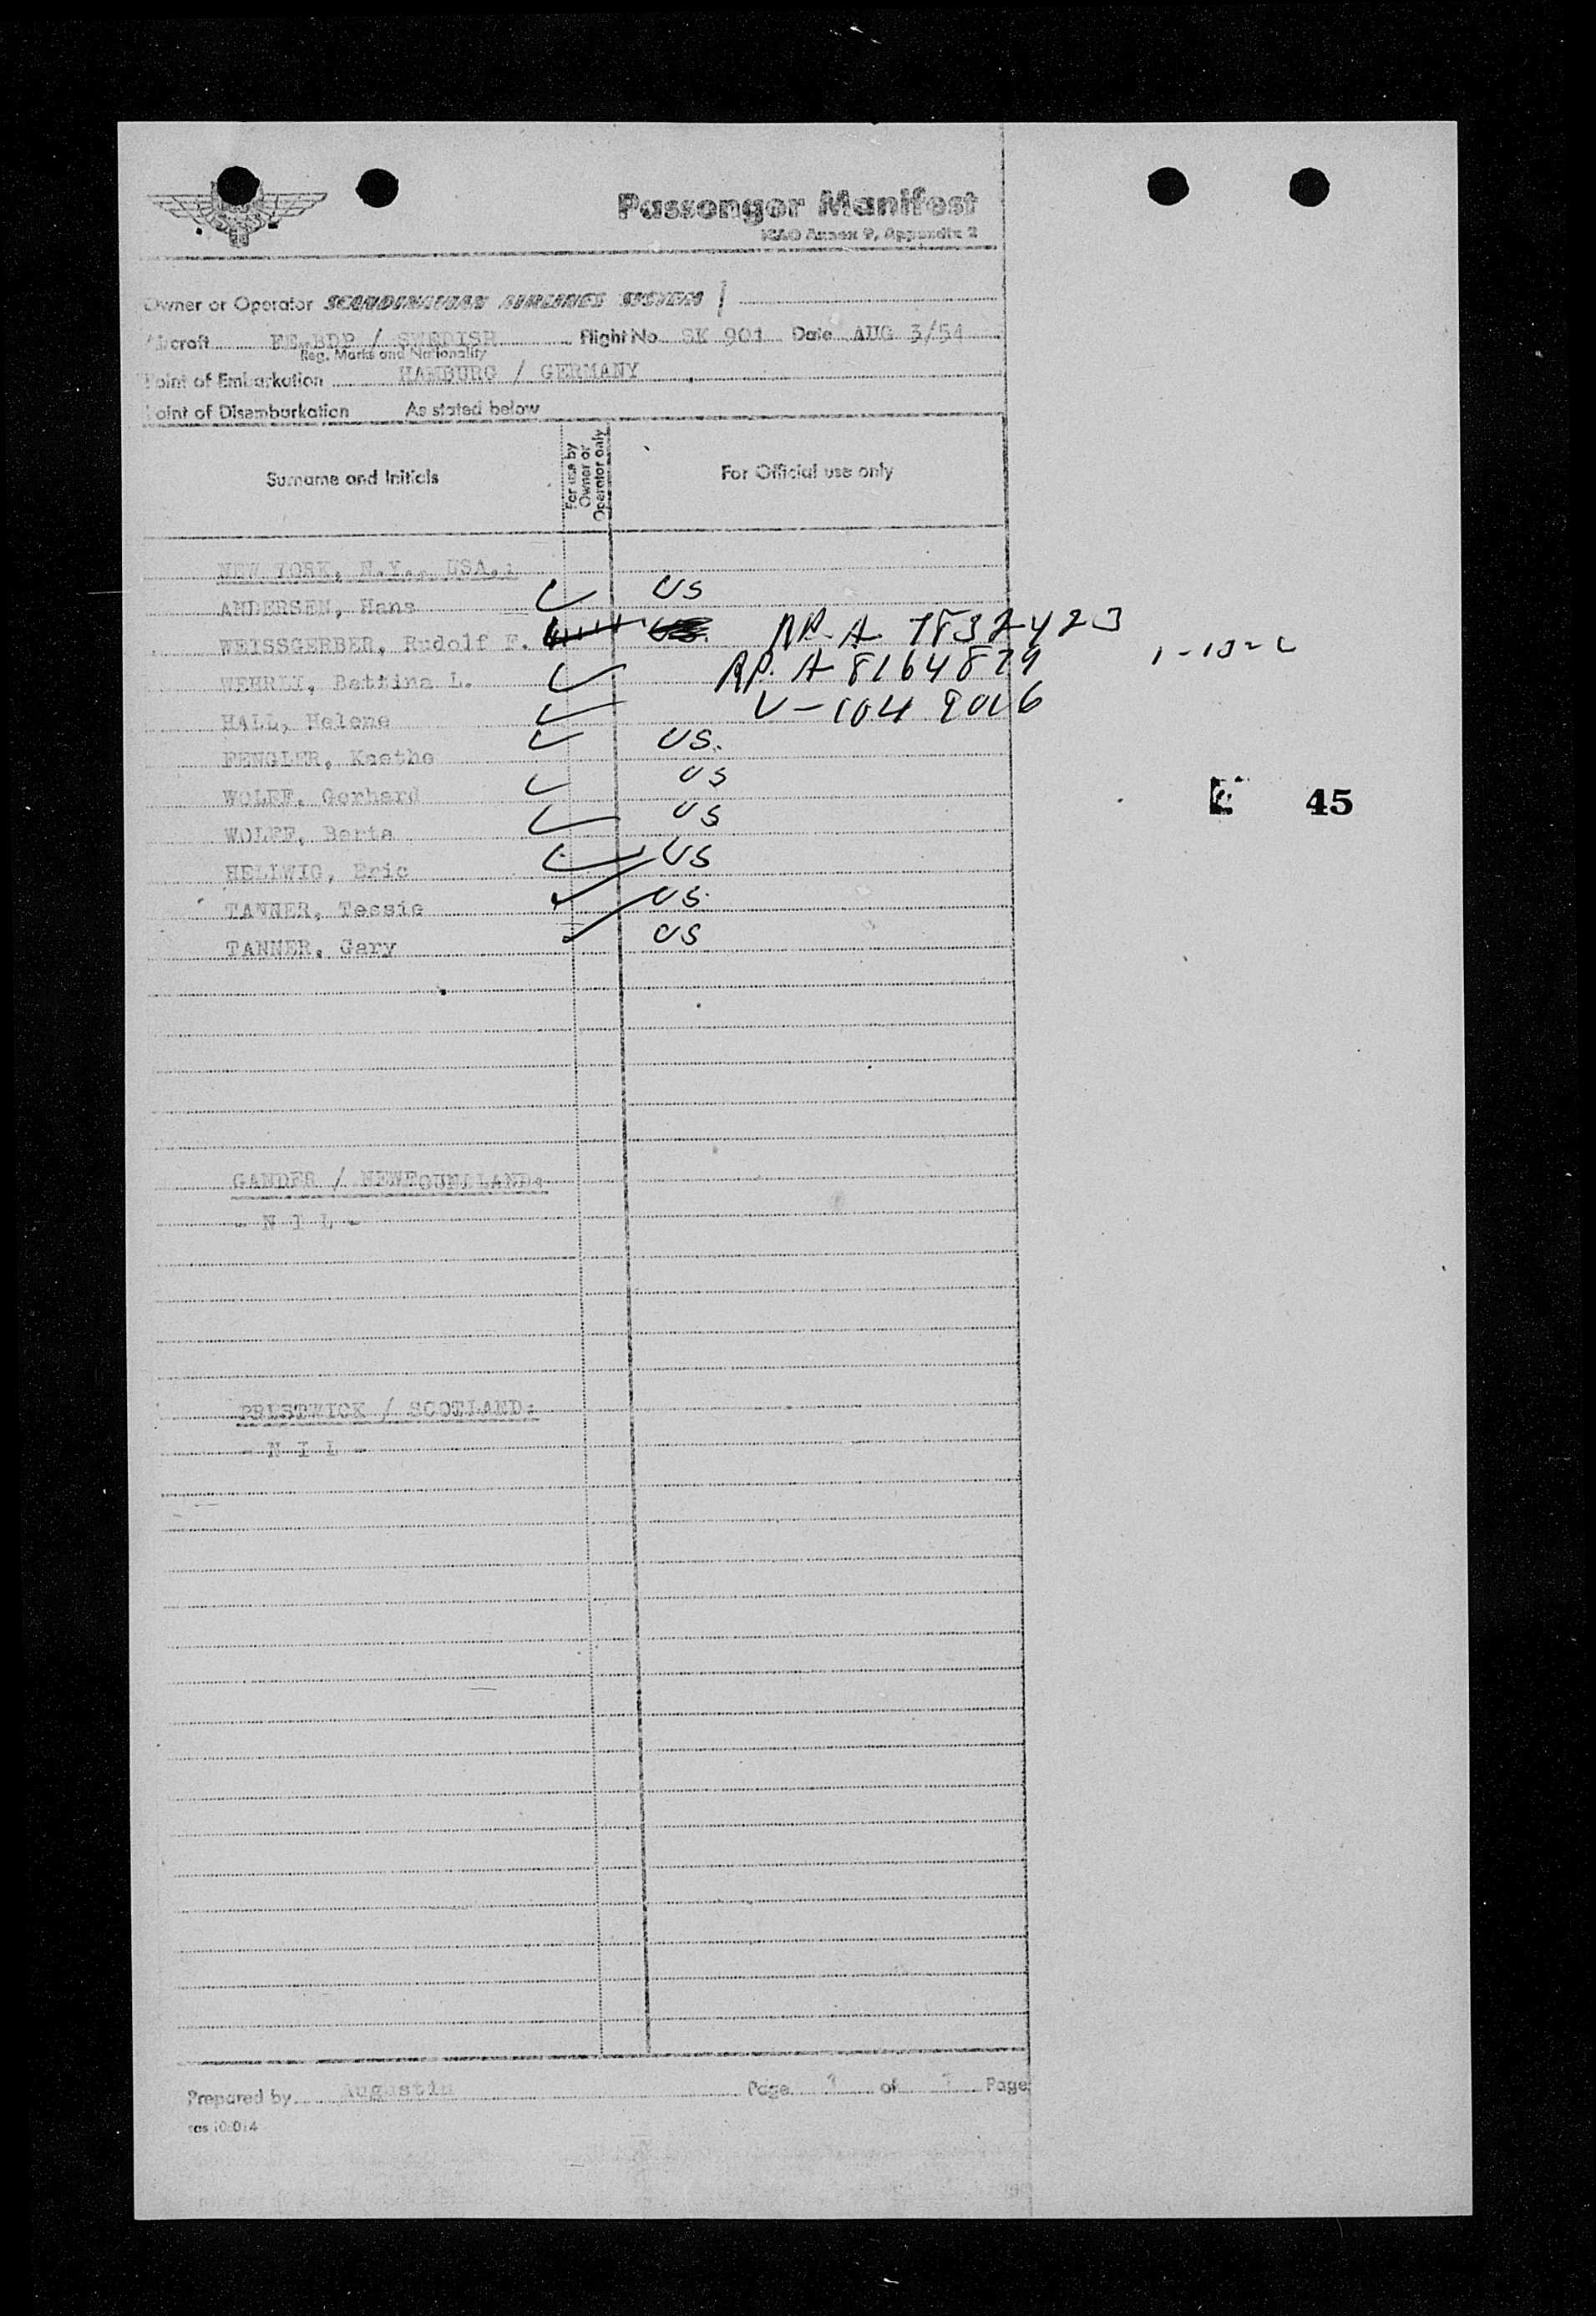 Passenger Manifest
ICAO Annex 9, Appendix 2
Owner or Operator SCANDINAVIAN AIRLINES SYSTEM
Aircraft / SWEDISH Flight No. SK 901 Date AUG 3/54
Reg. Marks and Nationality
Point of Embarkation HAMBURG / GERMANY
Point of Disembarkation As stated below
Surname and Initials For use by Owner or Operator only For Official use only
NEW YORK, N.Y., USA.:
ANDERSEN, Hans US
WEISSGERBER, Rudolf F. RP. A
WEHRLI, Bettina L. RP. A 8164879
HALL, Helene V-
FENGLER, Kaethe US.
WOLFF, Gerhard US
E 45
WOLFF, Berta US
HELLWIG, Eric US
TANNER, Tessie US.
TANNER, Gary US
GANDER / NEWFOUNDLAND:
- N I L -
PRESTWICK / SCOTLAND:
- N I L -
Prepared by Augustin Page 1 of 1 Page